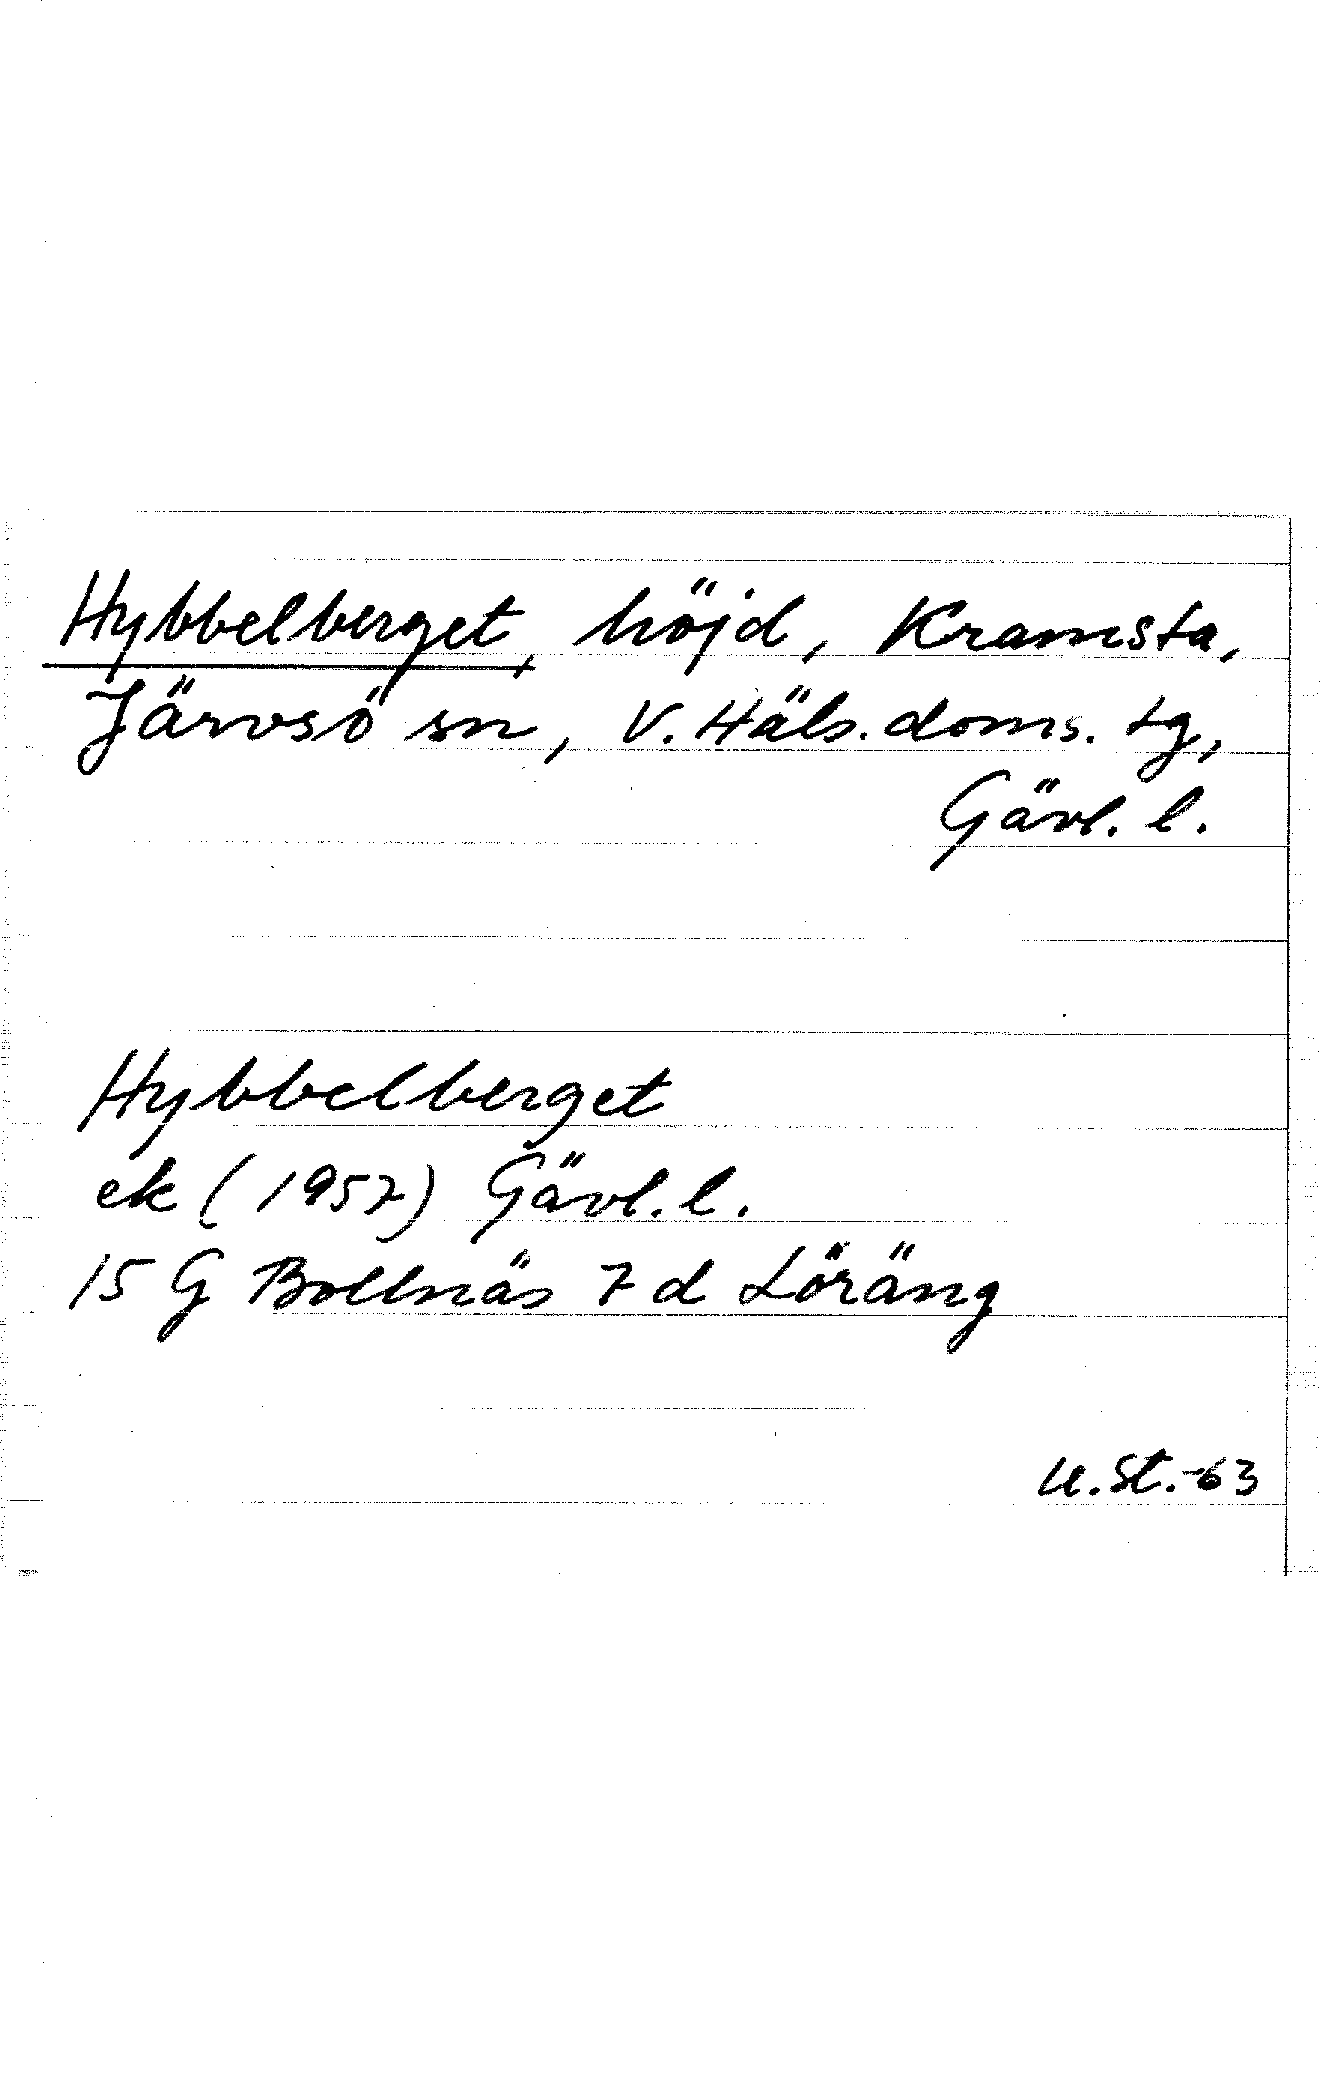 Hybbelberget, höjd, Kramsta,
Järvsö sn, V. Häls. doms. tg,
Gävl. l.
Hybbelberget
ek (1957) Gävl. l.
15 G Bollnäs 7 d Löräng
U. St. -63